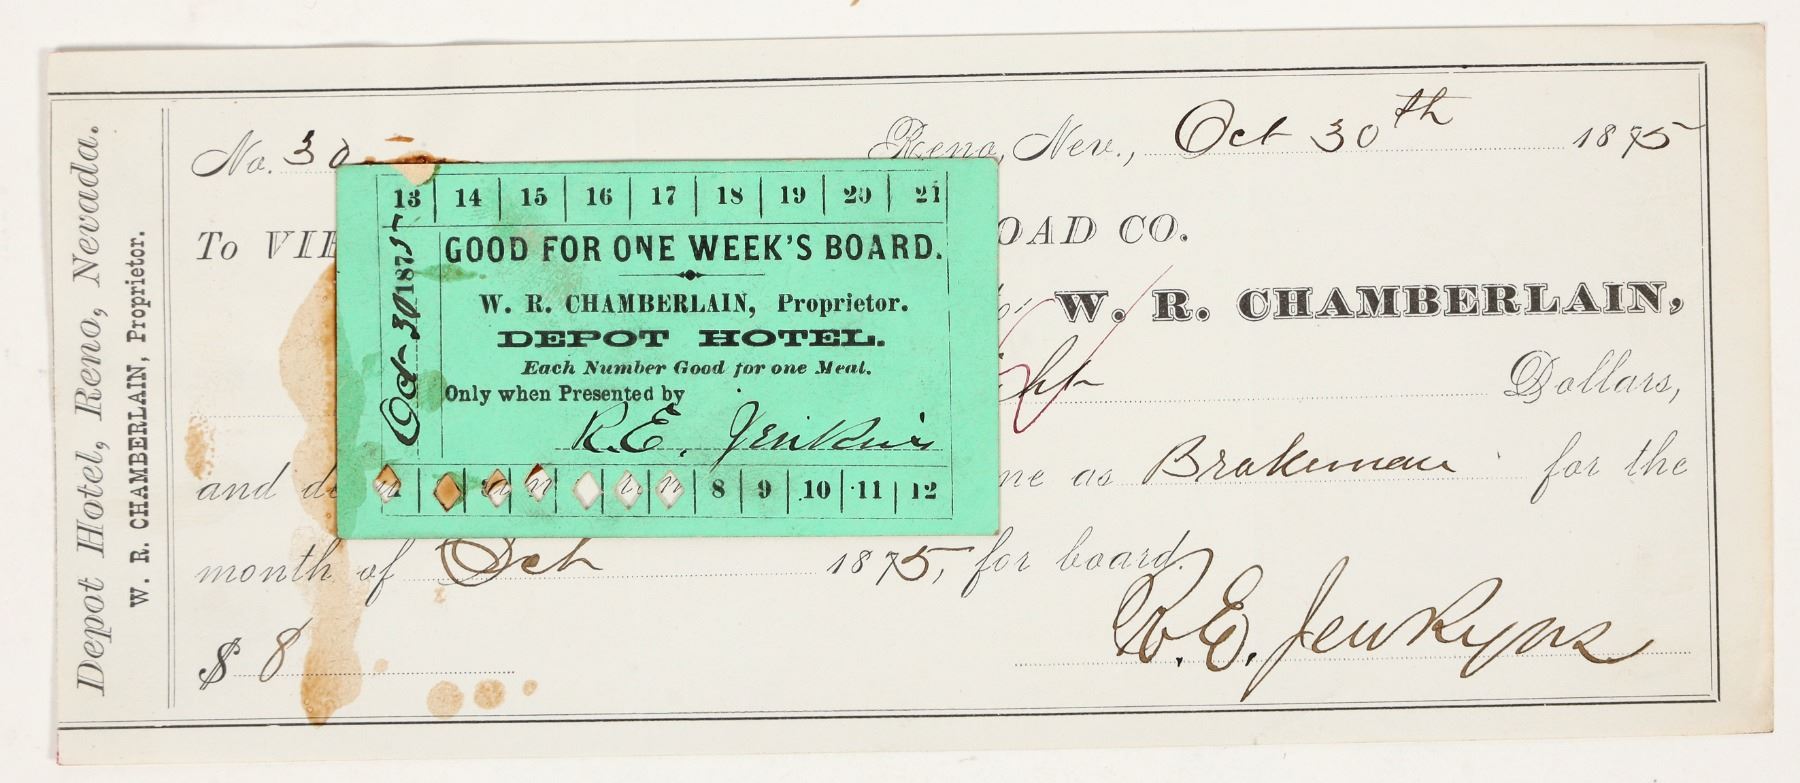 Depot Hotel, Reno, Nevada.
W. R. CHAMBERLAIN, Proprietor.
No. 30
Reno, Nev., Oct 30th 1875
To VI
OAD CO.
W. R. CHAMBERLAIN,
Dollars,
and de
me as Brakeman for the
month of Oct 1875, for board.
$ 8
R. E. Jenkyns
13 14 15 16 17 18 19 20 21
Oct 30 1875
GOOD FOR ONE WEEK'S BOARD.
W. R. CHAMBERLAIN, Proprietor.
DEPOT HOTEL.
Each Number Good for one Meal.
Only when Presented by
R. E. Jenkins
8 9 10 11 12